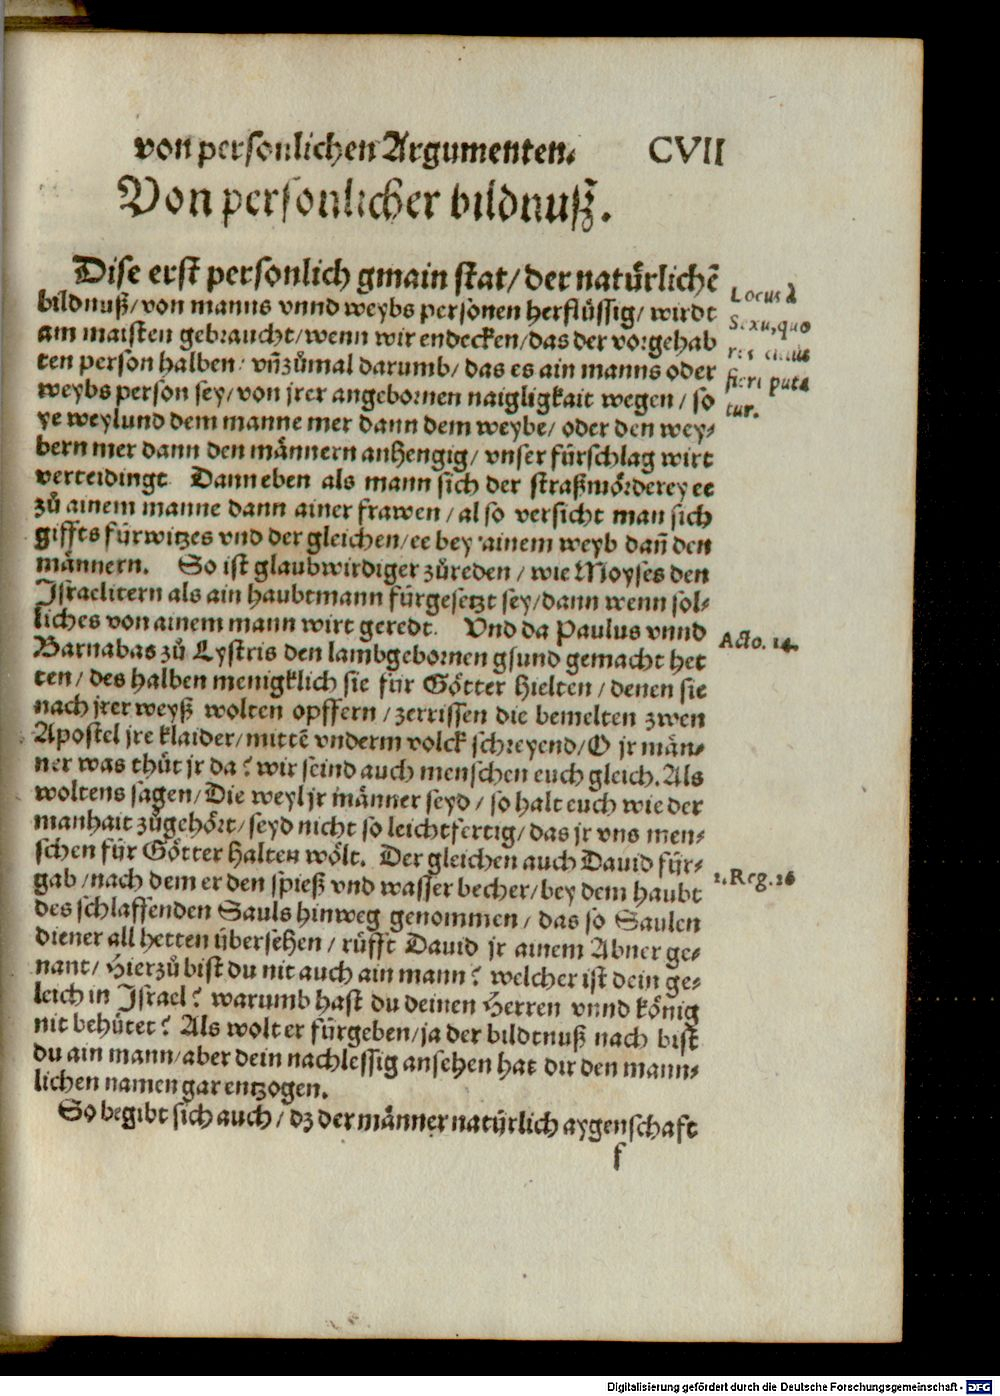 von personlichen Argumenten. CVII
Von personlicher bildnuß.
Dise erst personlich gmain stat/ der natürlichē
bildnuß/ von manns vnnd weybs personen herflüssig/ wirdt
am maisten gebraucht/ wenn wir endecken/ das der vorgehab
ten person halben/ vñ zůmal darumb/ das es ain manns oder
weybs person sey/ von jrer angebornen naigligkait wegen/ so
ye weylund dem manne mer dann dem weybe/ oder den wey-
bern mer dann den männern anhengig/ vnser fürschlag wirt
verteidingt. Dann eben als mann sich der straßmörderey ee
zů ainem manne dann ainer frawen/ also versicht man sich
giffts fürwitzes vnd der gleichen/ ee bey ainem weyb dañ den
männern. So ist glaubwirdiger zůreden/ wie Moyses den
Israelitern als ain haubtmann fürgesetzt sey/ dann wenn sol-
liches von ainem mann wirt geredt. Vnd da Paulus vnnd
Barnabas zů Lystris den lambgebornen gsund gemacht het
ten/ des halben menigklich sie für Götter hielten/ denen sie
nach jrer weyß wolten opffern/ zerrissen die bemelten zwen
Apostel jre klaider/ mittē vnderm volck schreyend/ O jr män-
ner was thůt jr da? wir seind auch menschen euch gleich. Als
woltens sagen/ Die weyl jr männer seyd/ so halt euch wie der
manhait zůgehört/ seyd nicht so leichtfertig/ das jr vns men-
schen für Götter halten wölt. Der gleichen auch Dauid für-
gab/ nach dem er den spieß vnd wasser becher/ bey dem haubt
des schlaffenden Sauls hinweg genommen/ das so Saulen
diener all hetten übersehen/ rüfft Dauid jr ainem Abner ge-
nant/ Hierzů bist du nit auch ain mann? welcher ist dein ge-
leich in Israel? warumb hast du deinen Herren vnnd könig
nit behütet? Als wolt er fürgeben/ ja der bildtnuß nach bist
du ain mann/ aber dein nachlessig ansehen hat dir den mann-
lichen namen gar entzogen.
So begibt sich auch/ dz der männer natürlich aygenschaft
f
Locus à
Sexu, quo
fieri puta
tur.
Acto. 14.
1. Reg. 26
Digitalisierung gefördert durch die Deutsche Forschungsgemeinschaft - DFG